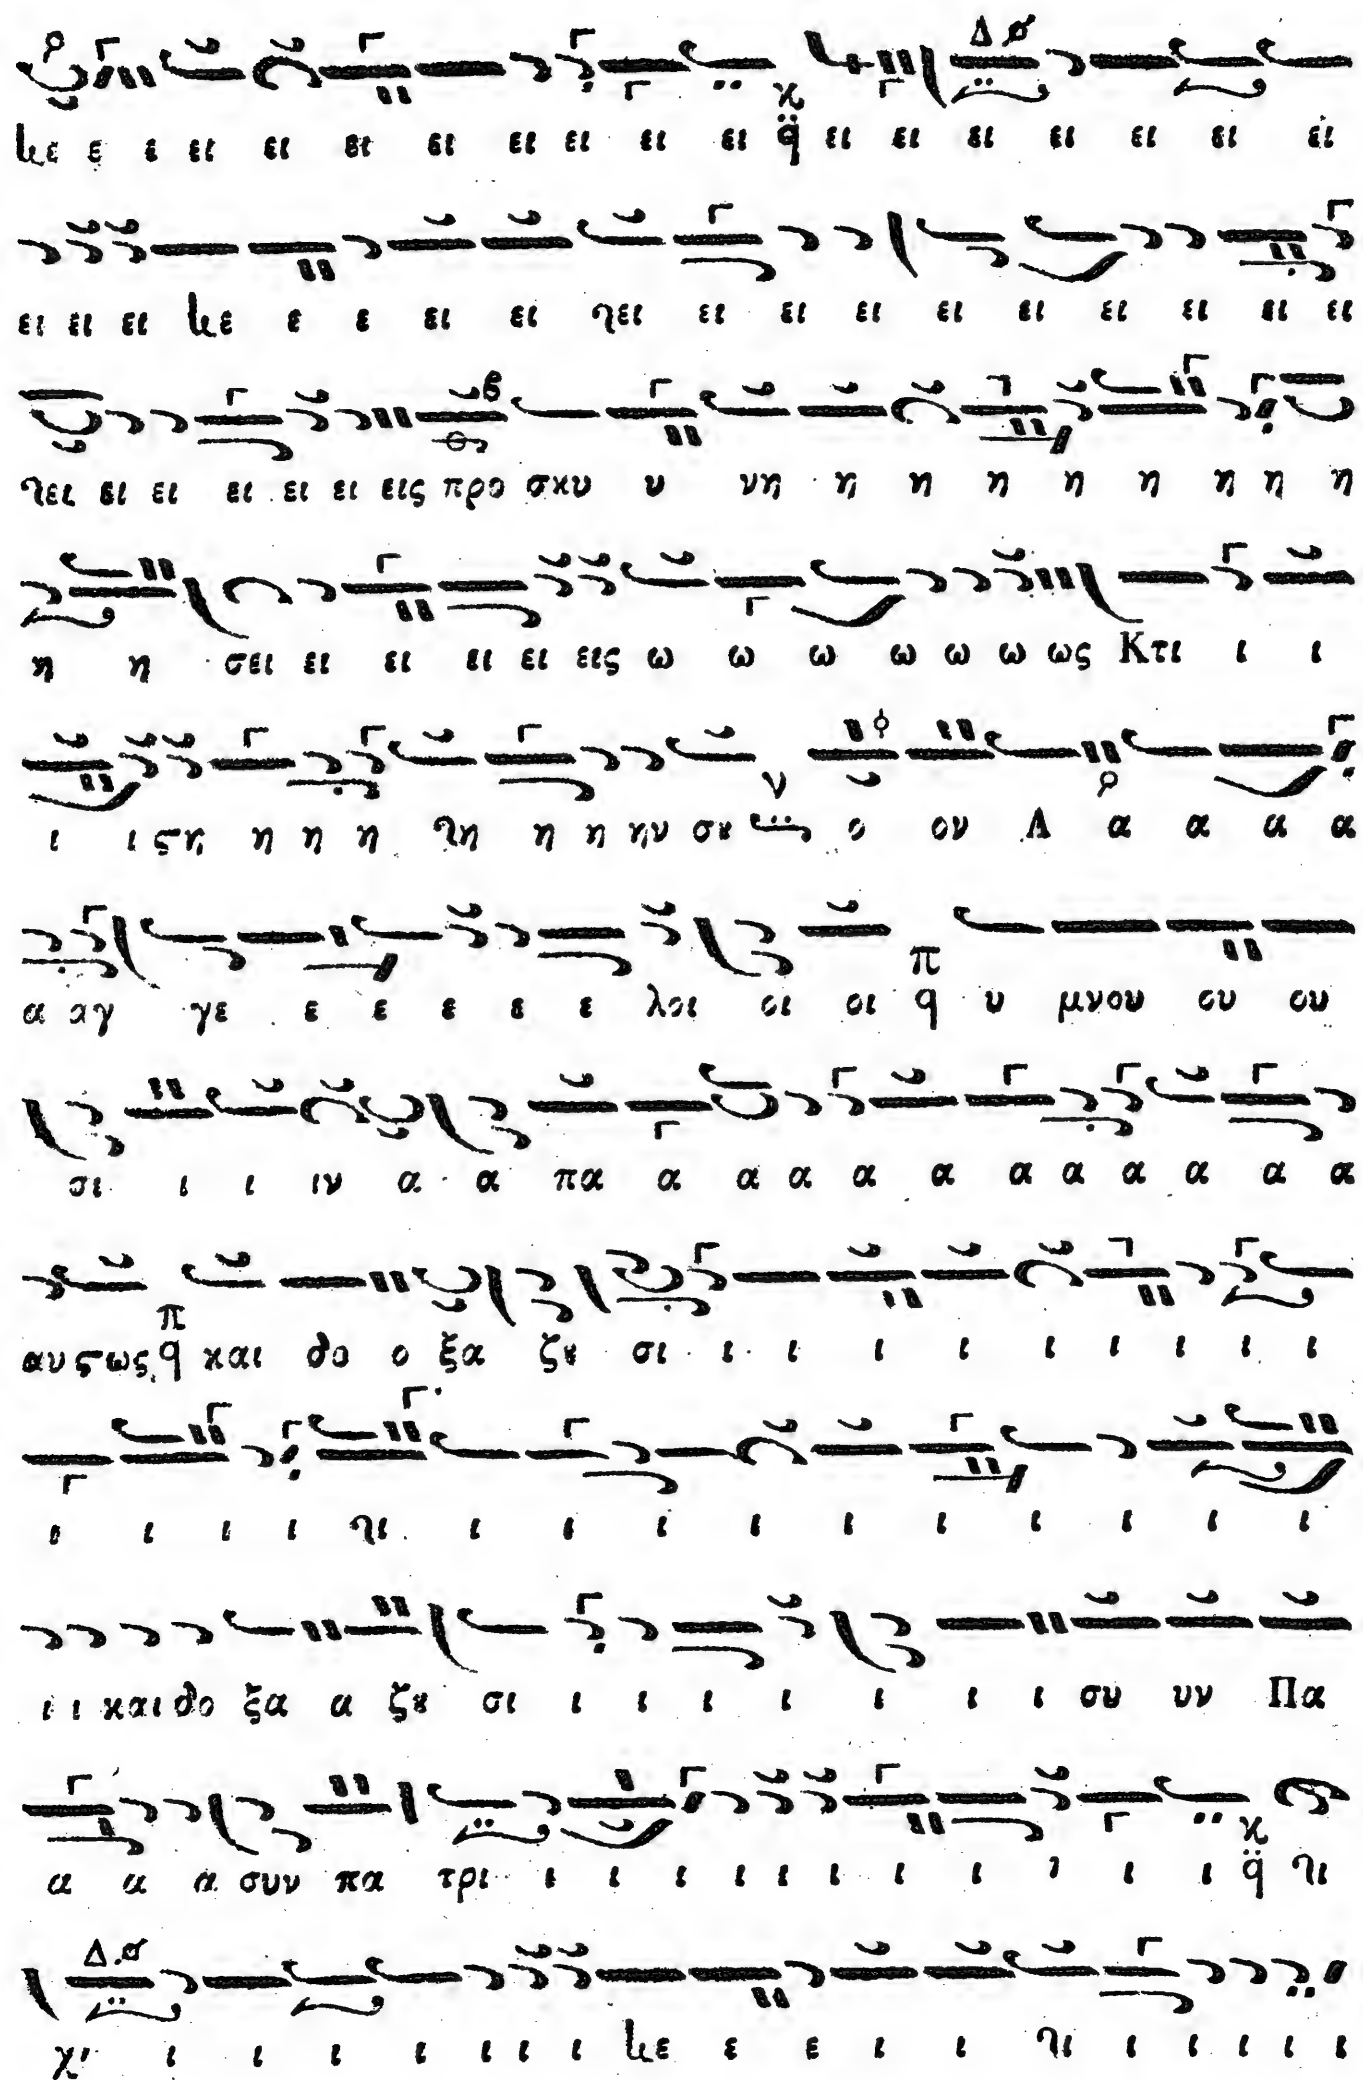 με ε ε ει ει ει ει ει ει ει ει ει ει ει ει ει ει ει
ει ει ει με ε ε ει ει τει ει ει ει ει ει ει ει ει ει
τει ει ει ει ει ει εις προ σκυ υ νη η η η η η η η η
η η σει ει ει ει ει εις ω ω ω ω ω ω ως Κτι ι ι
ι ι ςη η η η τη η η ην σȣ ο ον Α α α α α
α αγ γε ε ε ε ε ε λοι οι οι υ μνου ου ου
σι ι ι ιν α α πα α α α α α α α α α α α
αυςως και δο ο ξα ζȣ σι ι ι ι ι ι ι ι ι ι
ι ι ι ι τι ι ι ι ι ι ι ι ι ι ι
ι ι και δο ξα α ζȣ σι ι ι ι ι ι ι ι συ υν Πα
α α α συν πα τρι ι ι ι ι ι ι ι ι ι ι ι τι
χι ι ι ι ι ι ι ι με ε ε ι ι τι ι ι ι ι ι